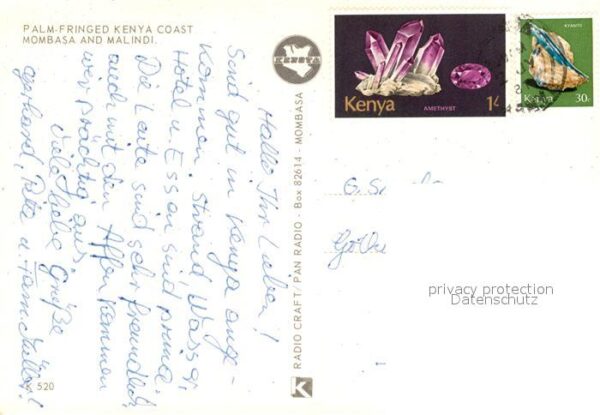 PALM-FRINGED KENYA COAST
MOMBASA AND MALINDI.
KENYA
Kenya
AMETHYST
1/-
KYANITE
Kenya
30c
Hallo Ihr Lieben!
Sind gut in Kenya ange-
kommen. Strand, Wasser,
Hotel u. Essen sind prima.
Die Leute sind sehr freundlich
und mit den Affen kommen
wir prächtig aus.
Viele liebe Grüße
Gerhard, u. Fam.
RADIO CRAFT/PAN RADIO - Box 82614 - MOMBASA
K
520
privacy protection
Datenschutz